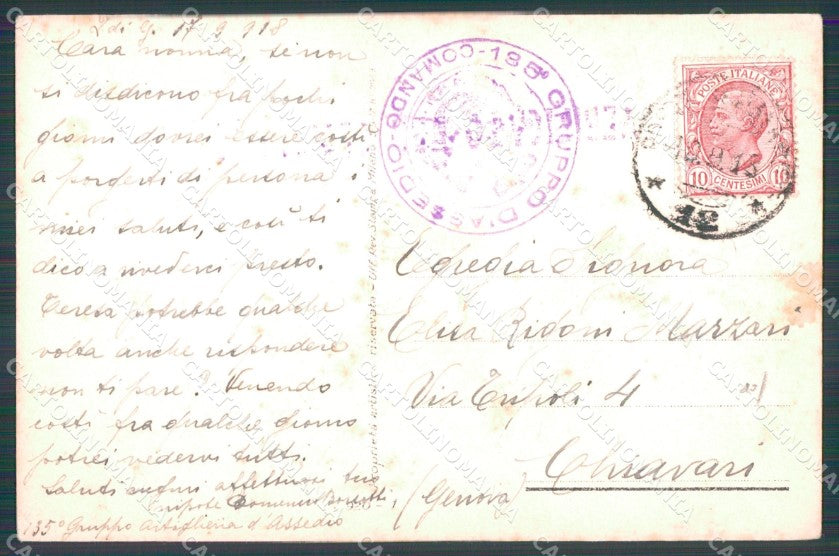 17 9 918
Cara nonna, se non
si disdicono fra pochi
giorni dovrei essere costì
a porgerti di persona i
miei saluti, e così ti
dico a rivederci presto.
Teresa potrebbe qualche
volta anche rispondere
non ti pare? Venendo
costì fra qualche giorno
potrei vedervi tutti.
Saluti infiniti affettuosi tuo
nipote Domenico
135° Gruppo Artiglieria d'Assedio
COMANDO - 135° GRUPPO D'ASSEDIO
POSTE ITALIANE
10 CENTESIMI 10
12
Egregia Signora
Elisa Ridoni Marzari
Via Tripoli 4
Chiavari
(Genova)
CARTOLINOMANIA